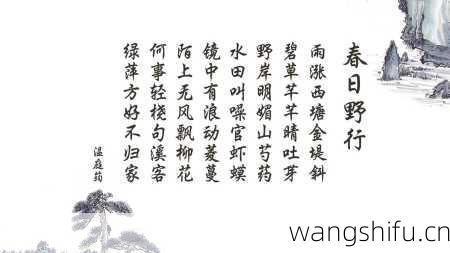 春日野行
雨涨西塘金堤斜
碧草芊芊晴吐芽
野岸明媚山芍药
水田叫噪官虾蟆
镜中有浪动菱蔓
陌上无风飘柳花
何事轻桡句溪客
绿萍方好不归家
温庭筠
wangshifu.cn